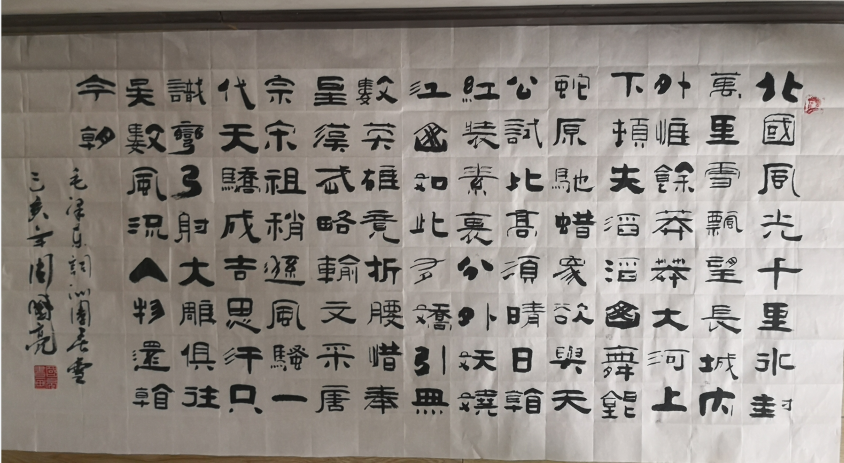 北國風光千里冰封
萬里雪飄望長城内
外惟餘莽莽大河上
下頓失滔滔山舞銀
蛇原馳蜡象欲與天
公試比高須晴日看
紅裝素裹分外妖嬈
江山如此多嬌引無
數英雄竞折腰惜秦
皇漢武略輸文采唐
宗宋祖稍遜風騷一
代天驕成吉思汗只
識彎弓射大雕俱往
矣數風流人物還看
今朝
毛澤東詞沁園春雪
己亥年周國亮